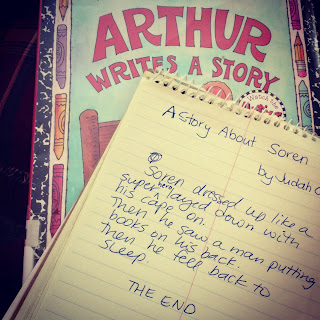 ARTHUR
WRITES A STORY
A Story About Soren
by Judah C
Soren dressed up like a
super hero layed down with
his cape on.
Then he saw a man putting
books on his back.
Then he fell back to
sleep.
THE END